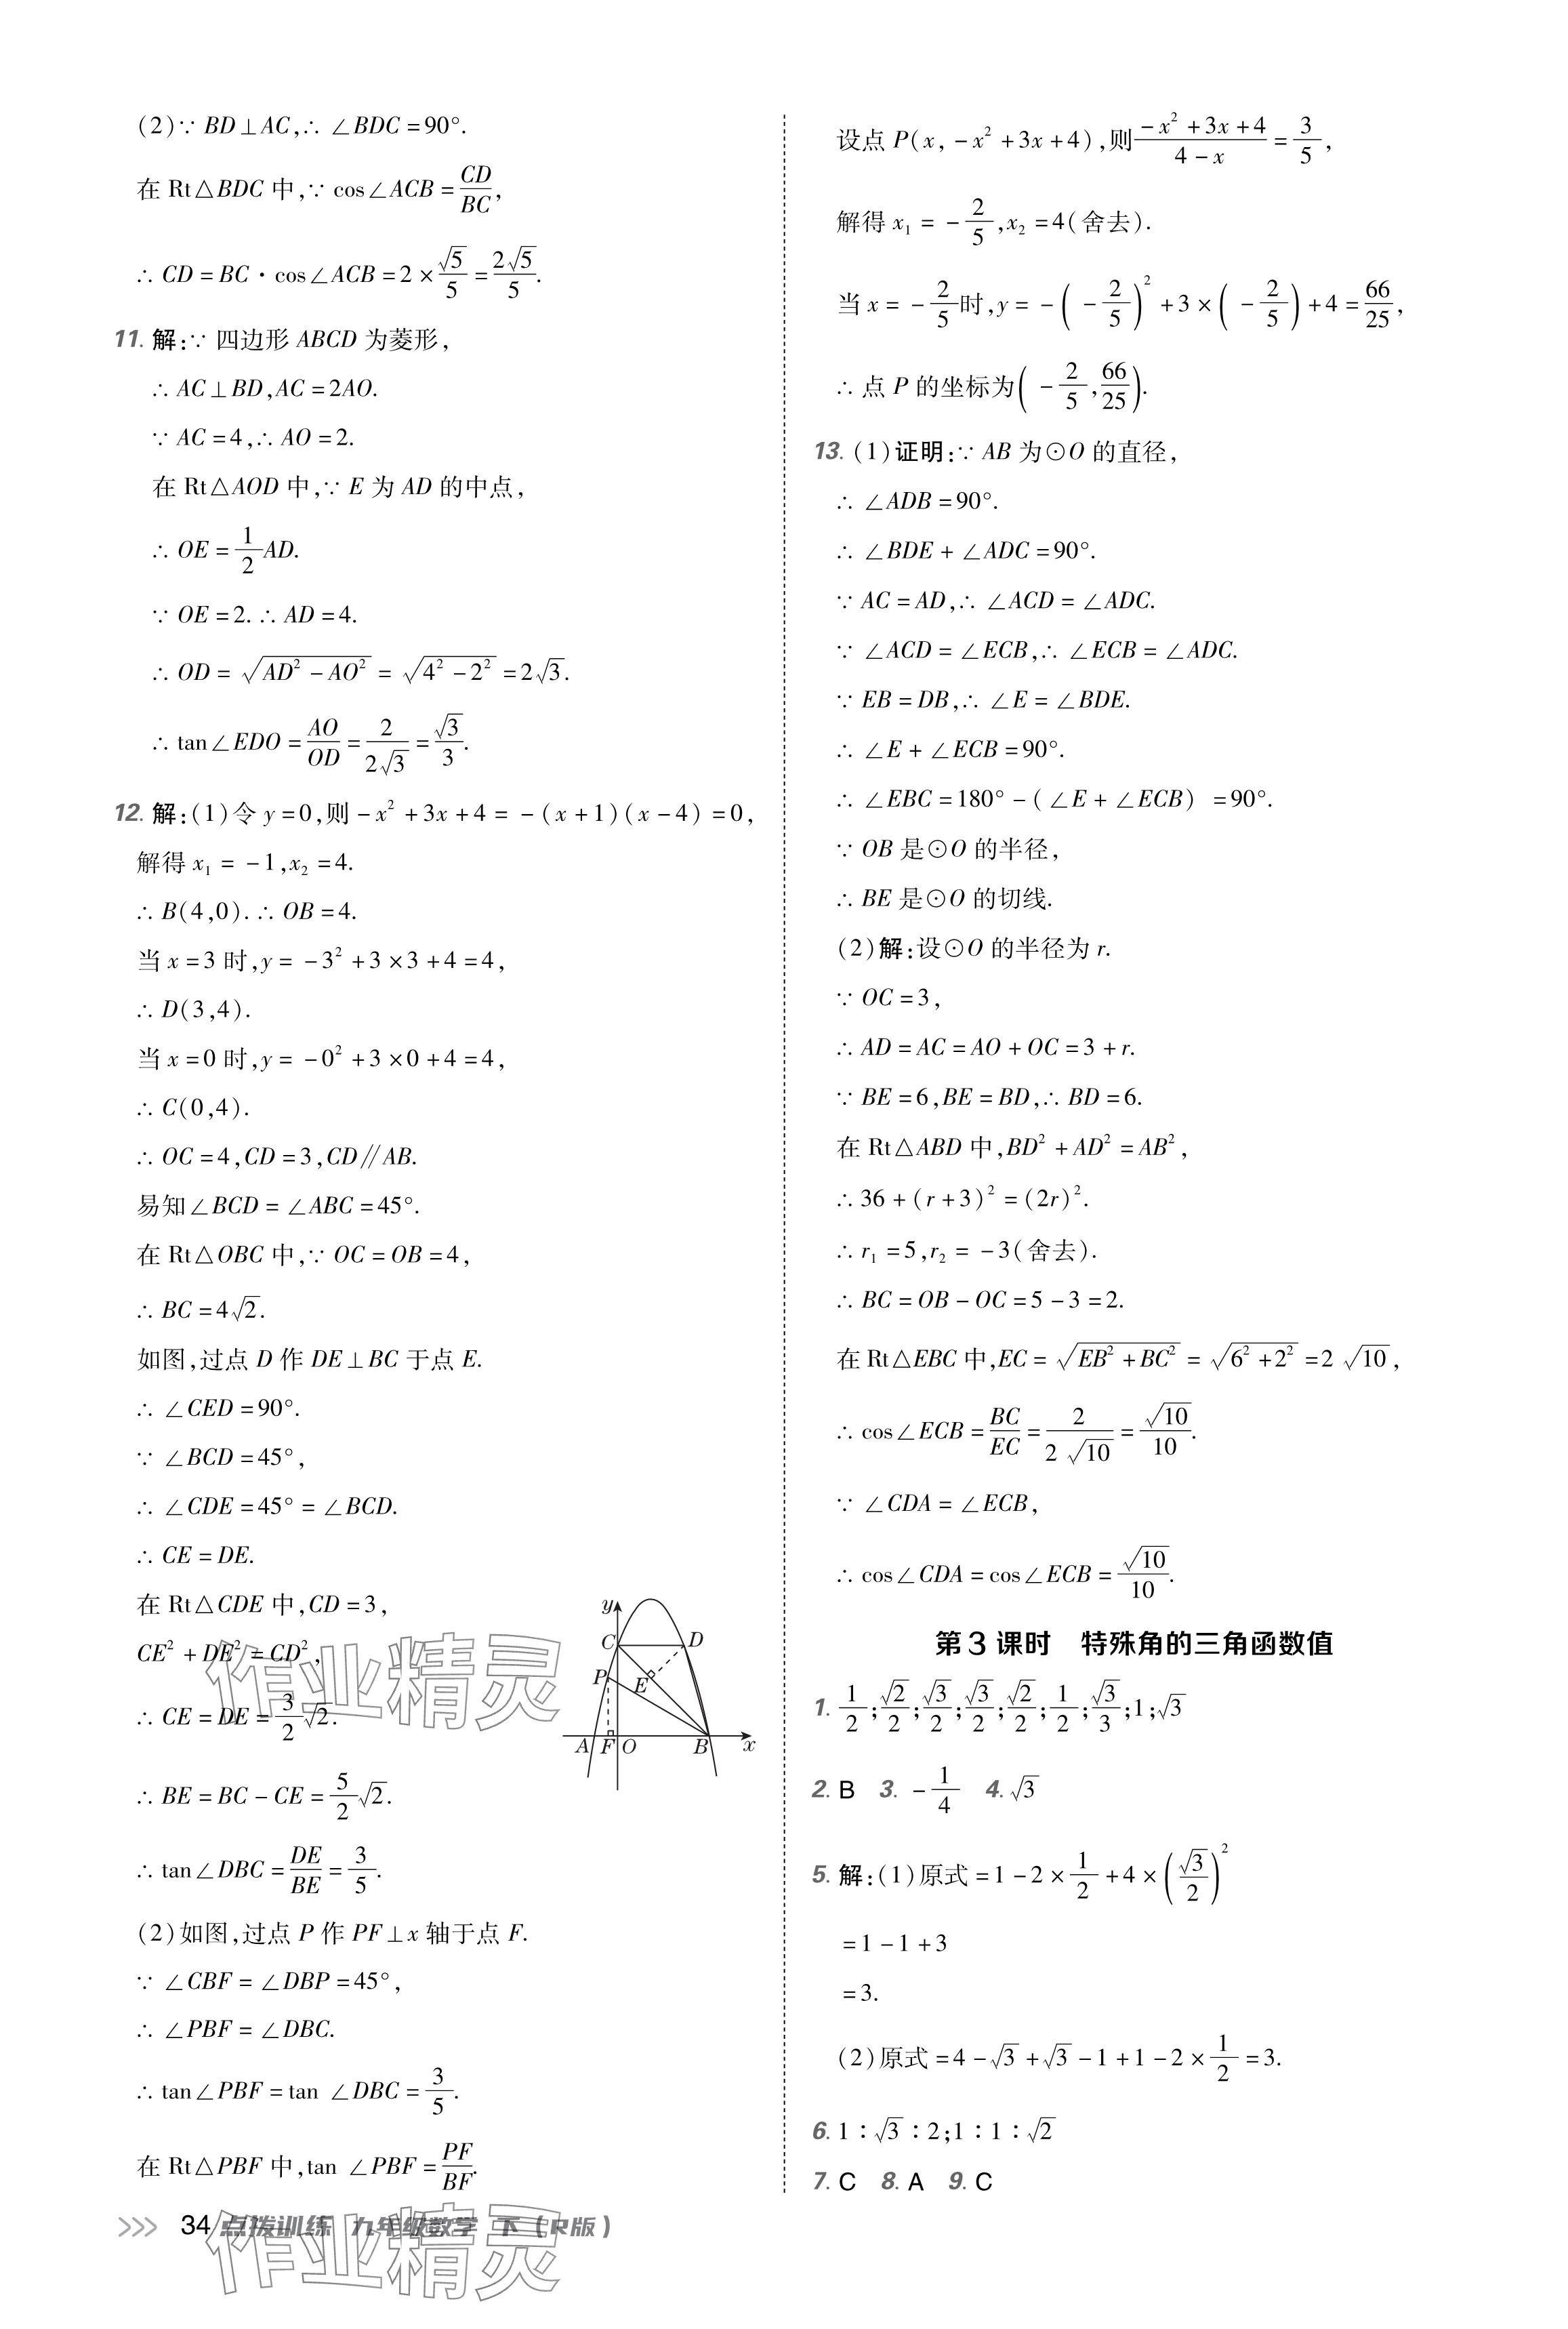 (2)∵ BD⊥AC,∴ ∠BDC=90°.
在 Rt△BDC 中,∵ cos∠ACB=CD/BC,
∴ CD=BC·cos∠ACB=2×√5/5=2√5/5.
11. 解:∵ 四边形 ABCD 为菱形,
∴ AC⊥BD,AC=2AO.
∵ AC=4,∴ AO=2.
在 Rt△AOD 中,∵ E 为 AD 的中点,
∴ OE=1/2AD.
∵ OE=2.∴ AD=4.
∴ OD=√(AD²-AO²)=√(4²-2²)=2√3.
∴ tan∠EDO=AO/OD=2/(2√3)=√3/3.
12. 解:(1)令 y=0,则-x²+3x+4=-(x+1)(x-4)=0,
解得 x₁=-1,x₂=4.
∴ B(4,0).∴ OB=4.
当 x=3 时,y=-3²+3×3+4=4,
∴ D(3,4).
当 x=0 时,y=-0²+3×0+4=4,
∴ C(0,4).
∴ OC=4,CD=3,CD∥AB.
易知∠BCD=∠ABC=45°.
在 Rt△OBC 中,∵ OC=OB=4,
∴ BC=4√2.
如图,过点 D 作 DE⊥BC 于点 E.
∴ ∠CED=90°.
∵ ∠BCD=45°,
∴ ∠CDE=45°=∠BCD.
∴ CE=DE.
在 Rt△CDE 中,CD=3,
CE²+DE²=CD²,
∴ CE=DE=3/2√2.
∴ BE=BC-CE=5/2√2.
∴ tan∠DBC=DE/BE=3/5.
y
C D
P E
A F O B x
(2)如图,过点 P 作 PF⊥x 轴于点 F.
∵ ∠CBF=∠DBP=45°,
∴ ∠PBF=∠DBC.
∴ tan∠PBF=tan ∠DBC=3/5.
在 Rt△PBF 中,tan ∠PBF=PF/BF.
设点 P(x,-x²+3x+4),则(-x²+3x+4)/(4-x)=3/5,
解得 x₁=-2/5,x₂=4(舍去).
当 x=-2/5时,y=-(-2/5)²+3×(-2/5)+4=66/25,
∴ 点 P 的坐标为(-2/5,66/25).
13. (1)证明:∵ AB 为⊙O 的直径,
∴ ∠ADB=90°.
∴ ∠BDE+∠ADC=90°.
∵ AC=AD,∴ ∠ACD=∠ADC.
∵ ∠ACD=∠ECB,∴ ∠ECB=∠ADC.
∵ EB=DB,∴ ∠E=∠BDE.
∴ ∠E+∠ECB=90°.
∴ ∠EBC=180°-(∠E+∠ECB)=90°.
∵ OB 是⊙O 的半径,
∴ BE 是⊙O 的切线.
(2)解:设⊙O 的半径为 r.
∵ OC=3,
∴ AD=AC=AO+OC=3+r.
∵ BE=6,BE=BD,∴ BD=6.
在 Rt△ABD 中,BD²+AD²=AB²,
∴ 36+(r+3)²=(2r)².
∴ r₁=5,r₂=-3(舍去).
∴ BC=OB-OC=5-3=2.
在 Rt△EBC 中,EC=√(EB²+BC²)=√(6²+2²)=2√10,
∴ cos∠ECB=BC/EC=2/(2√10)=√10/10.
∵ ∠CDA=∠ECB,
∴ cos∠CDA=cos∠ECB=√10/10.
第 3 课时　特殊角的三角函数值
1. 1/2;√2/2;√3/2;√3/2;√2/2;1/2;√3/3;1;√3
2. B　3. -1/4　4. √3
5. 解:(1)原式=1-2×1/2+4×(√3/2)²
=1-1+3
=3.
(2)原式=4-√3+√3-1+1-2×1/2=3.
6. 1∶√3∶2;1∶1∶√2
7. C　8. A　9. C
34 点拨训练　九年级数学　下(R版)
作业精灵
作业精灵